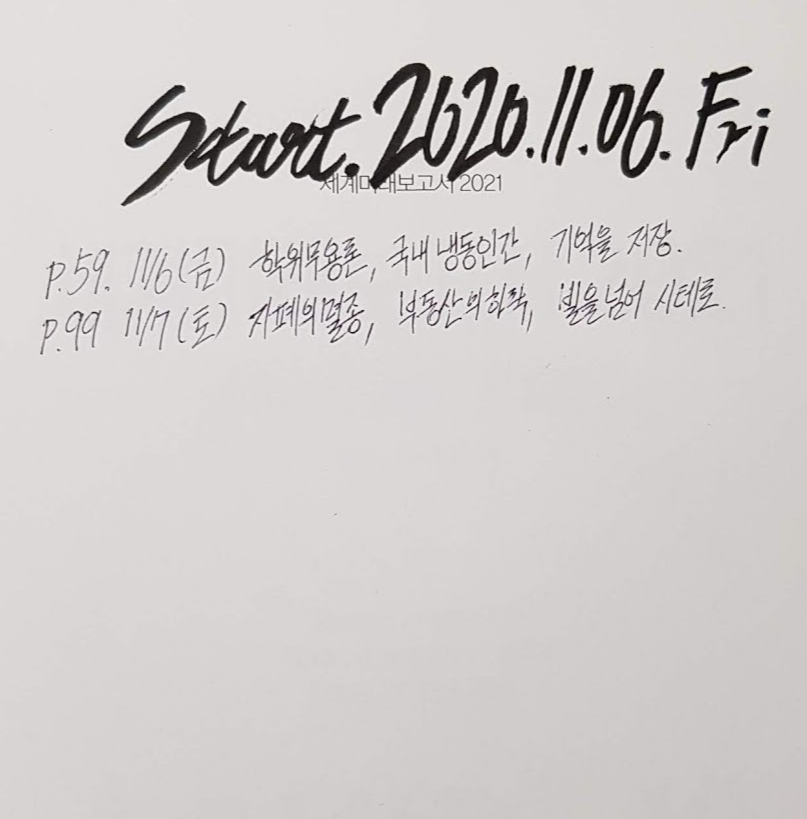 Start. 2020.11.06. Fri
세계미래보고서 2021
p.59. 11/6(금) 학위무용론, 국내 냉동인간, 기억을 저장.
p.99 11/7(토) 지폐의멸종, 부동산의하락, 빚을넘어 시테크.